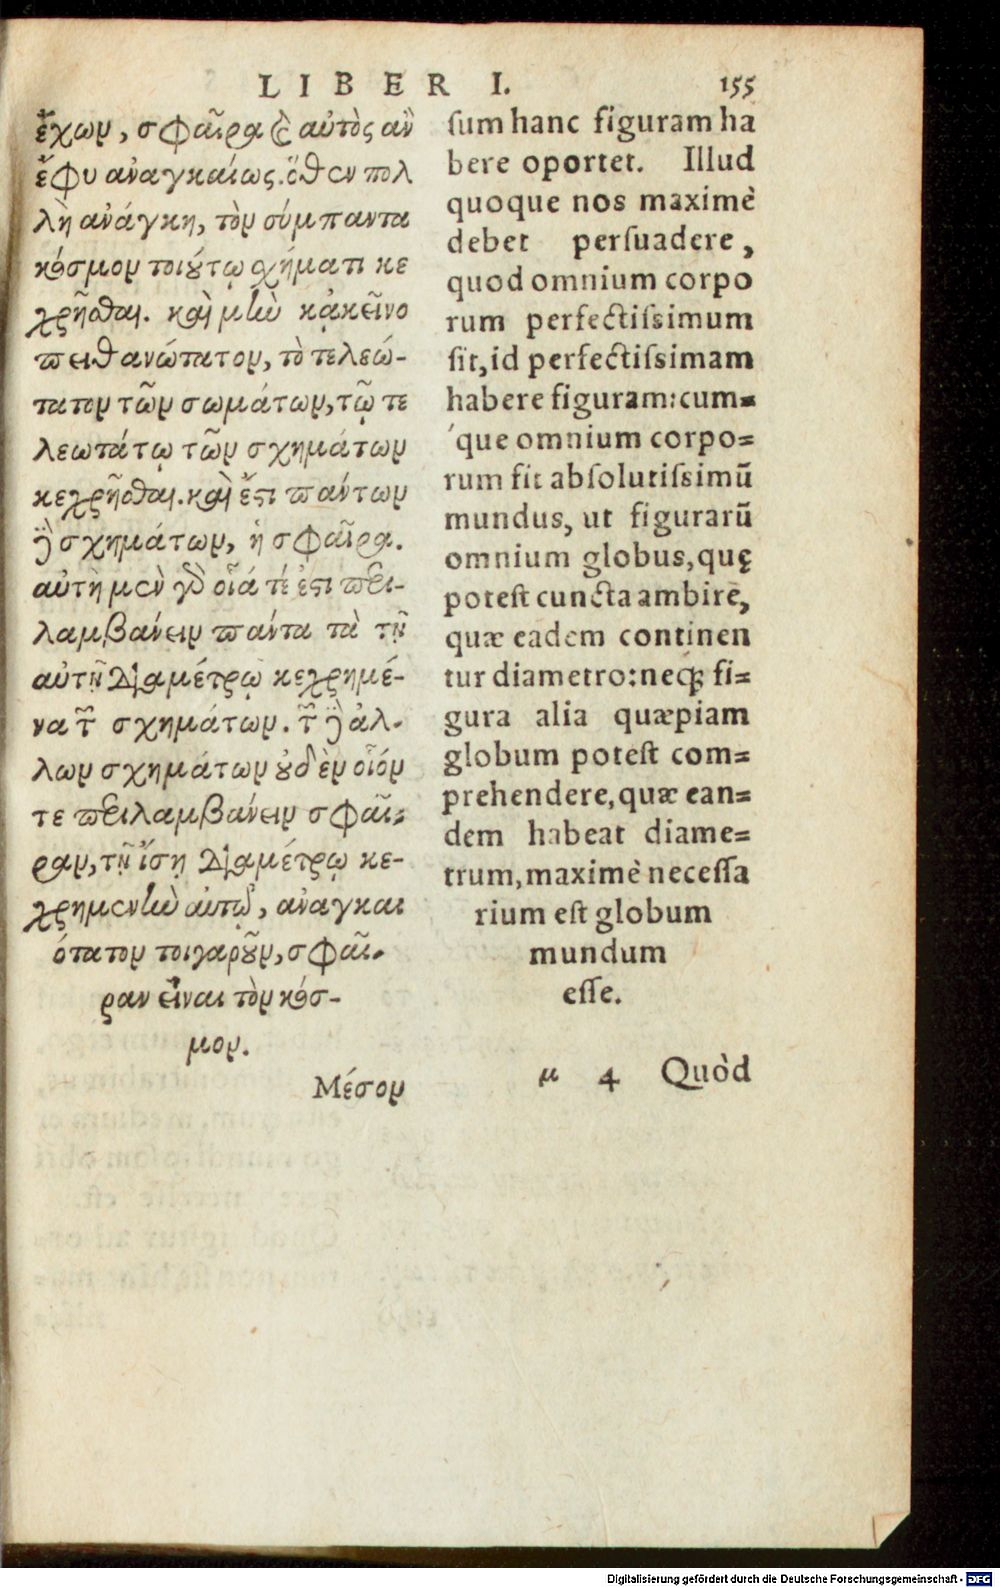 LIBER I. 155
ἔχων, σφαῖρα ⁊ς αὐτὸς ἂν
ἔφυ ἀναγκαίως. ὅθεν πολ
λὴ ἀνάγκη, τὸν σύμπαντα
κόσμον τοιούτῳ σχήματι κε
χρῆσθαι. καὶ μὴν κἀκεῖνο
πειθανώτατον, τὸ τελεώ-
τατον τῶν σωμάτων, τῷ τε
λεωτάτῳ τῶν σχημάτων
κεχρῆσθαι. καὶ ἔστι πάντων
δὲ σχημάτων, ἡ σφαῖρα.
αὐτὴ μὲν γὰρ οἷά τέ ἐστι περι-
λαμβάνειν πάντα τὰ τῇ
αὐτῇ διαμέτρῳ κεχρημέ-
να τῶν σχημάτων. τῶν δὲ ἀλ-
λων σχημάτων οὐδὲν οἷόν
τε περιλαμβάνειν σφαῖ-
ραν, τῇ ἴσῃ διαμέτρῳ κε-
χρημένην αὐτῷ, ἀναγκαι
ότατον τοιγαροῦν, σφαῖ-
ραν εἶναι τὸν κόσ-
μον.
Μέσον
sum hanc figuram ha
bere oportet. Illud
quoque nos maximè
debet persuadere,
quod omnium corpo
rum perfectissimum
sit, id perfectissimam
habere figuram: cum=
´que omnium corpo=
rum sit absolutissimũ
mundus, ut figurarũ
omnium globus, quę
potest cuncta ambire,
quæ eadem continen
tur diametro: neq; fi=
gura alia quæpiam
globum potest com=
prehendere, quæ ean=
dem habeat diame=
trum, maximè necessa
rium est globum
mundum
esse.
μ 4 Quòd
Digitalisierung gefördert durch die Deutsche Forschungsgemeinschaft - DFG